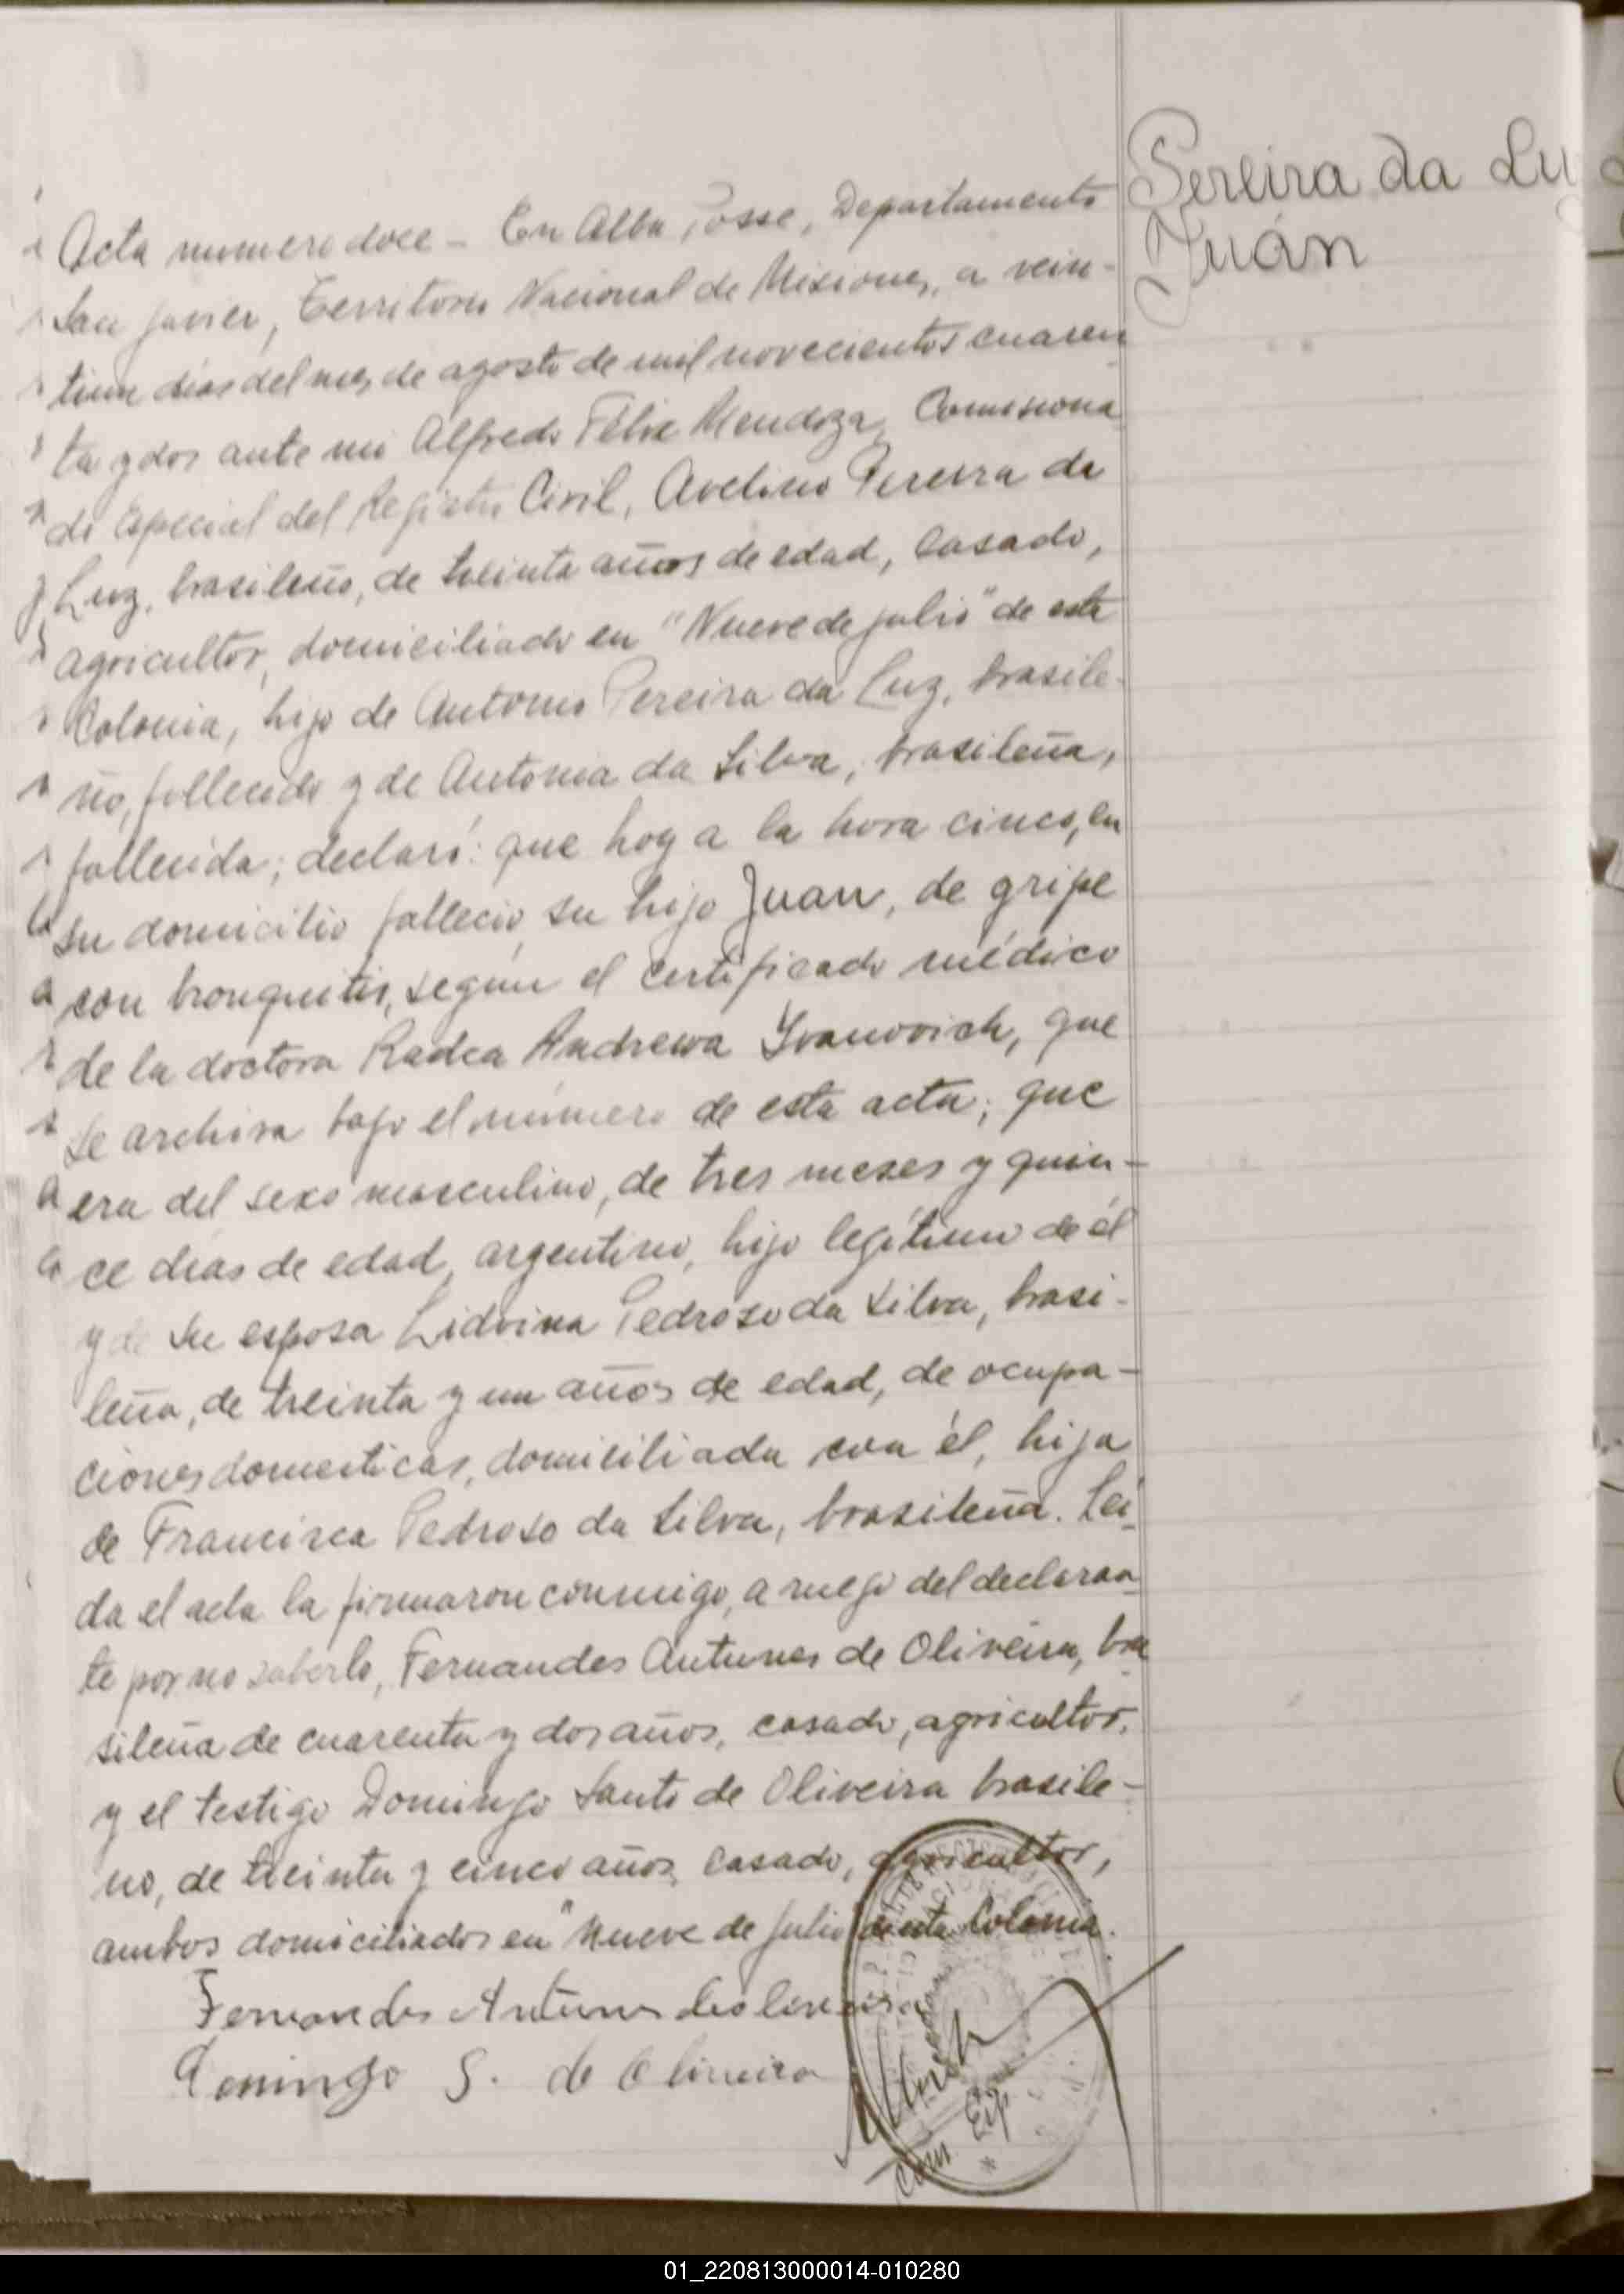 Pereira da Lu
Juán
Acta numero doce - En Alba Posse, Departamento
San Javier, Territorio Nacional de Misiones, a vein-
tiun dias del mes de agosto de mil novecientos cuaren
ta y dos ante mi Alfredo Félix Mendoza, Comisiona
do Especial del Registro Civil, Avelino Pereira da
Luz, brasileño, de treinta años de edad, casado,
agricultor, domiciliado en "Nueve de julio" de esta
Colonia, hijo de Antonio Pereira da Luz, brasile-
ño, fallecido y de Antonia da Silva, brasileña,
fallecida; declaró: que hoy a la hora cinco, en
su domicilio falleció su hijo Juan, de gripe
con bronquitis, según el certificado médico
de la doctora Radea Andrewa Yvanovich, que
se archiva bajo el número de esta acta; que
era del sexo masculino, de tres meses y quin-
ce dias de edad, argentino, hijo legítimo de él
y de su esposa Lidvina Pedroso da Silva, brasi-
leña, de treinta y un años de edad, de ocupa-
ciones domesticas, domiciliada con él, hija
de Francisca Pedroso da Silva, brasileña. Leí-
da el acta la firmaron conmigo, a ruego del declaran
te por no saberlo, Fernandes Antunes de Oliveira, bra
sileña de cuarenta y dos años, casado, agricultor,
y el testigo Domingo Santo de Oliveira brasile-
no, de treinta y cinco años, casado, agricultor,
ambos domiciliados en "Nueve de Julio" de esta Colonia.
Fernandes Antunes deoliveira
Domingo S. de Oliveira
Com Esp
01_220813000014-010280